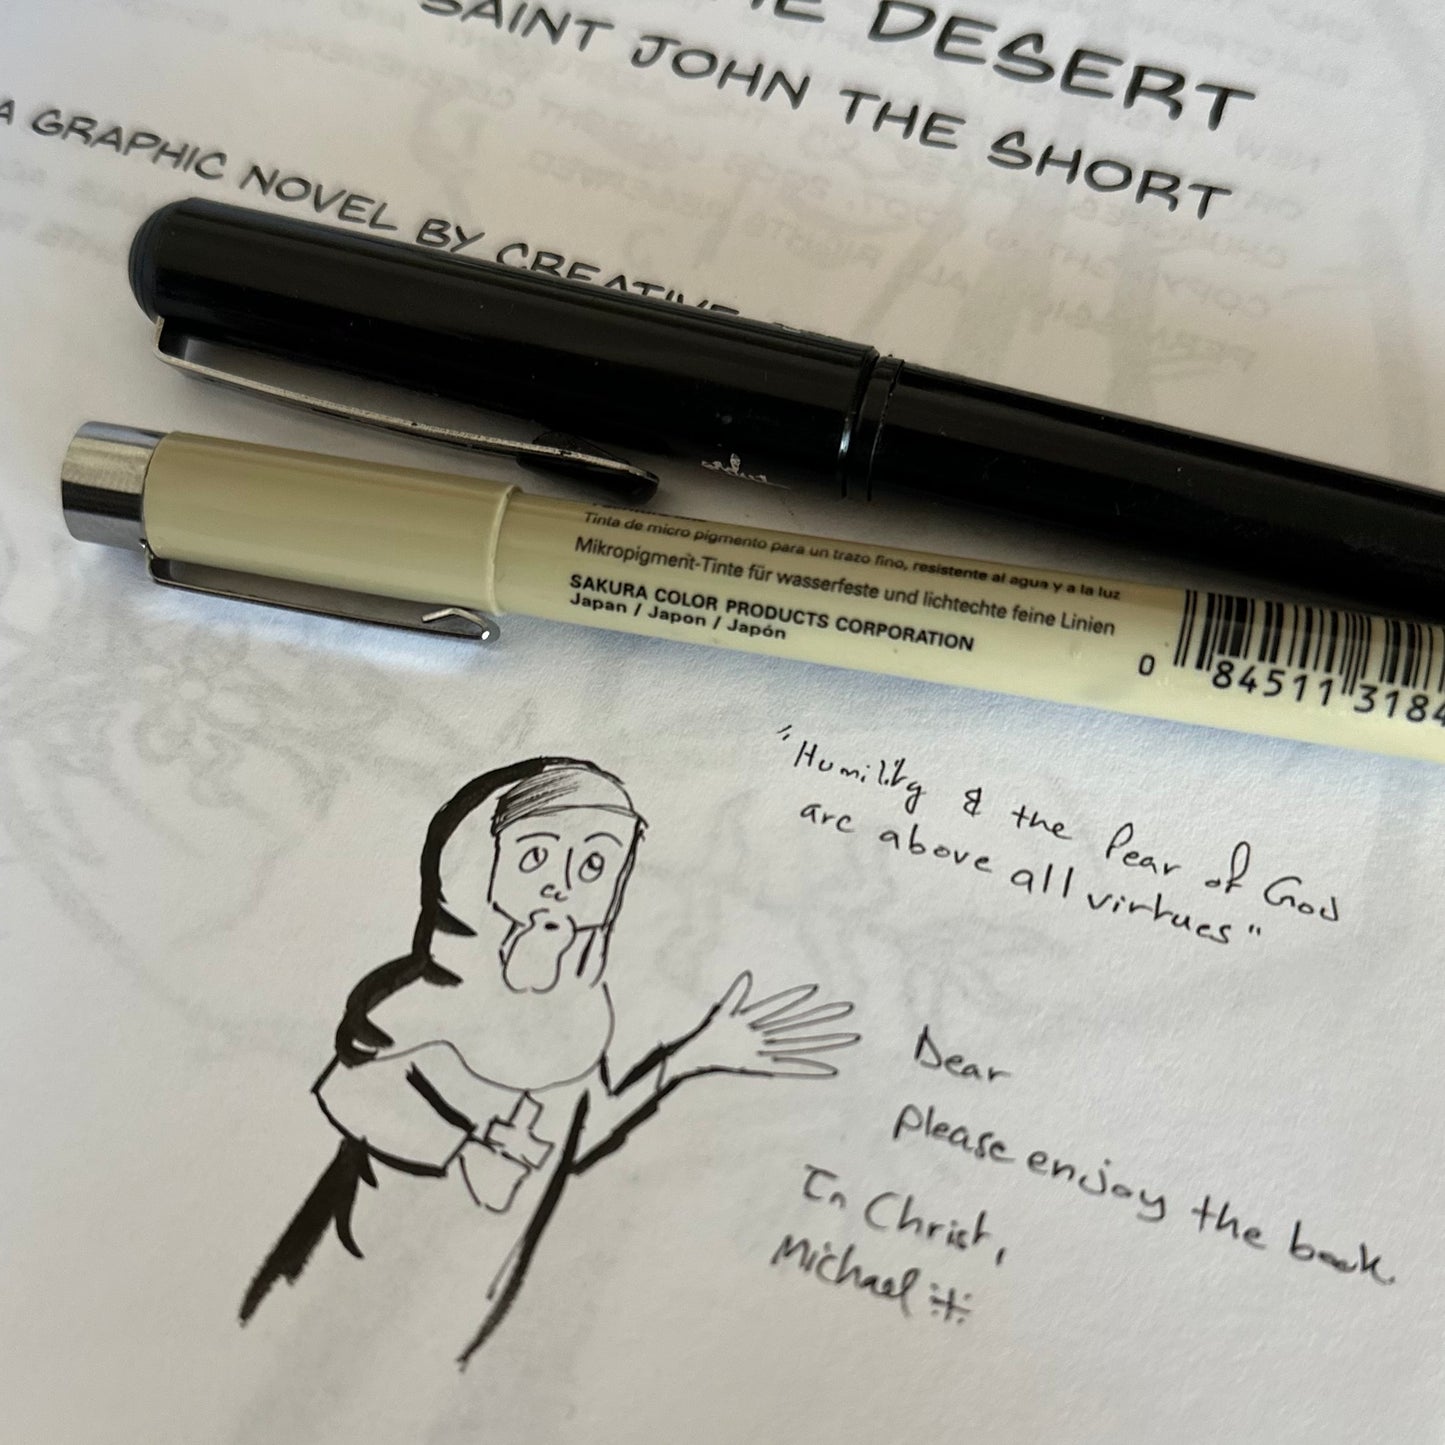 DESERT
SAINT JOHN THE SHORT
A GRAPHIC NOVEL BY CREATIVE
Tinta de micro pigmento para un trazo fino, resistente al agua y a la luz
Mikropigment-Tinte für wasserfeste und lichtechte feine Linien
SAKURA COLOR PRODUCTS CORPORATION
Japan / Japon / Japón
0 84511 3184
"Humility & the fear of God
are above all virtues"
Dear
please enjoy the book.
In Christ,
Michael